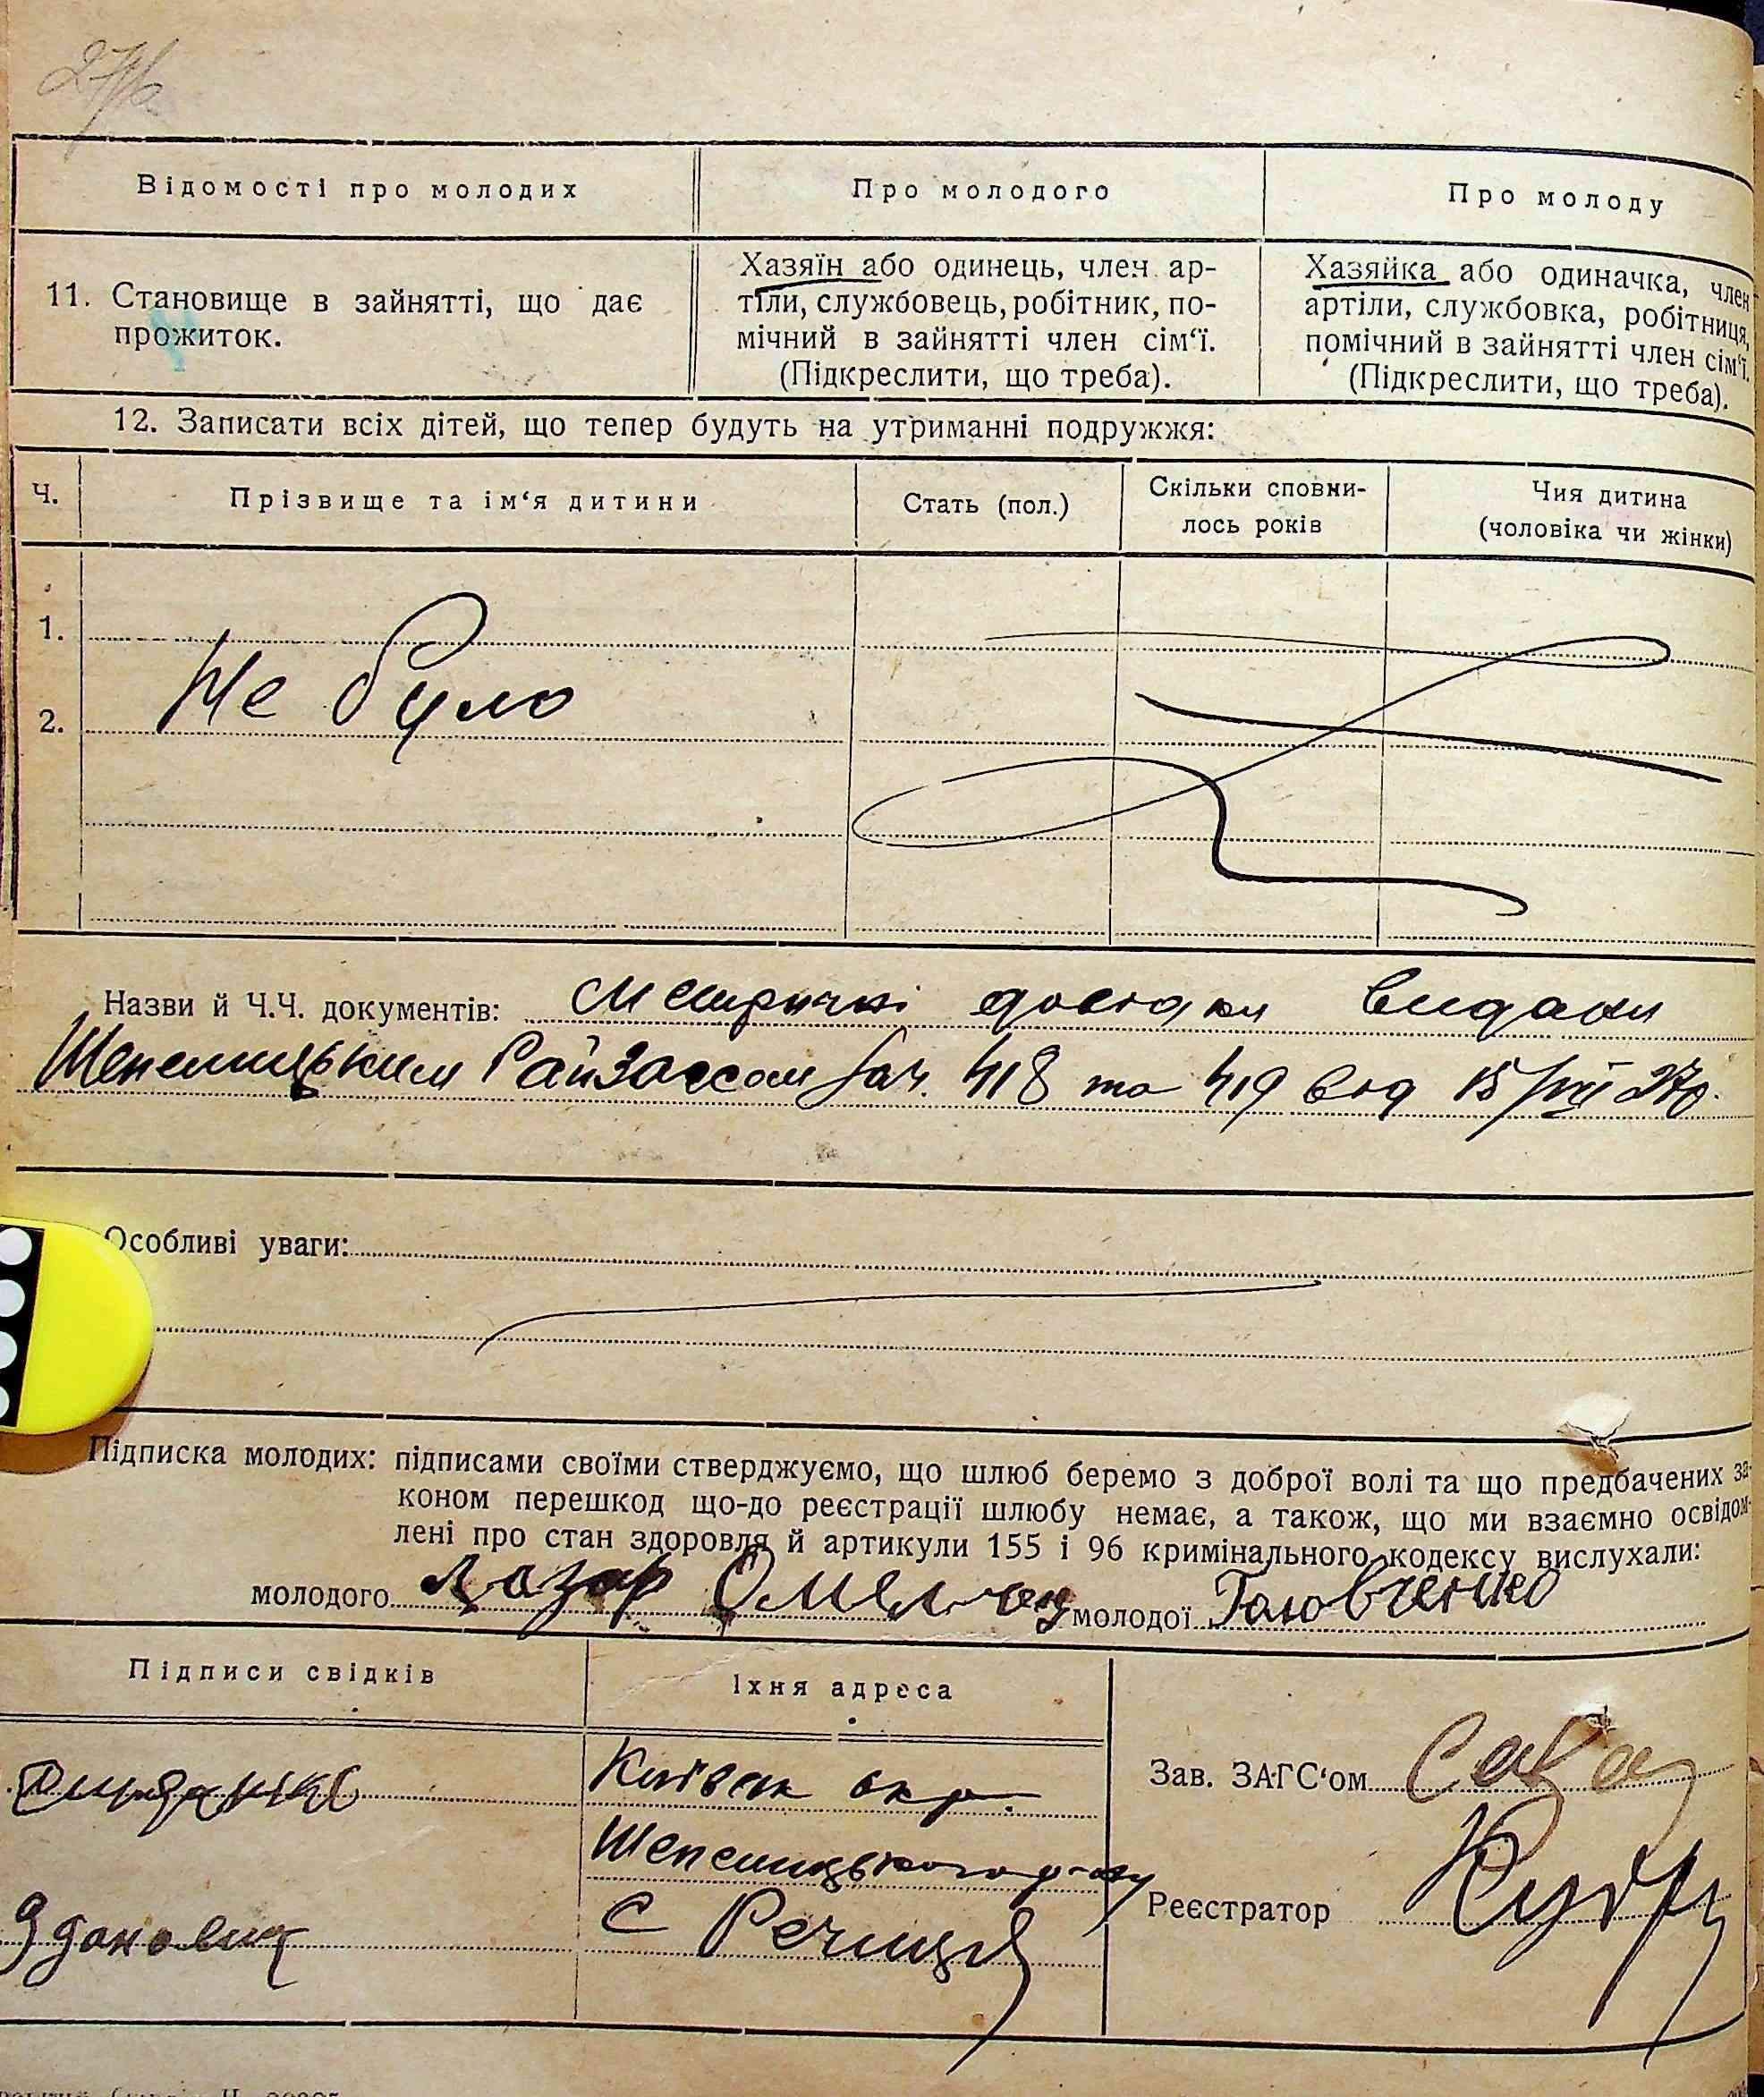 Відомості про молодих
Про молодого
Про молоду
11. Становище в зайнятті, що дає
прожиток.
Хазяїн або одинець, член ар-
тіли, службовець, робітник, по-
мічний в зайнятті член сім‘ї.
(Підкреслити, що треба).
Хазяйка або одиначка, член
артіли, службовка, робітниця,
помічний в зайнятті член сім‘ї.
(Підкреслити, що треба).
12. Записати всіх дітей, що тепер будуть на утриманні подружжя:
Ч.
Прізвище та ім‘я дитини
Стать (пол.)
Скільки сповни-
лось років
Чия дитина
(чоловіка чи жінки)
1.
2.
Не було
Назви й Ч.Ч. документів: Метричні довідки видани
Шепелицьким Райзагсом за ч. 418 та 419 від 15/VII 27р.
Особливі уваги:
Підписка молодих: підписами своїми стверджуємо, що шлюб беремо з доброї волі та що предбачених за-
коном перешкод що-до реєстрації шлюбу немає, а також, що ми взаємно освідом-
лені про стан здоровля й артикули 155 і 96 кримінального кодексу вислухали:
молодого Лазар молодої Головченко
Підписи свідків
Їхня адреса
Київск окр.
Шепелицького р-ну
с Речиця
Зданович
Зав. ЗАГС‘ом
Реєстратор